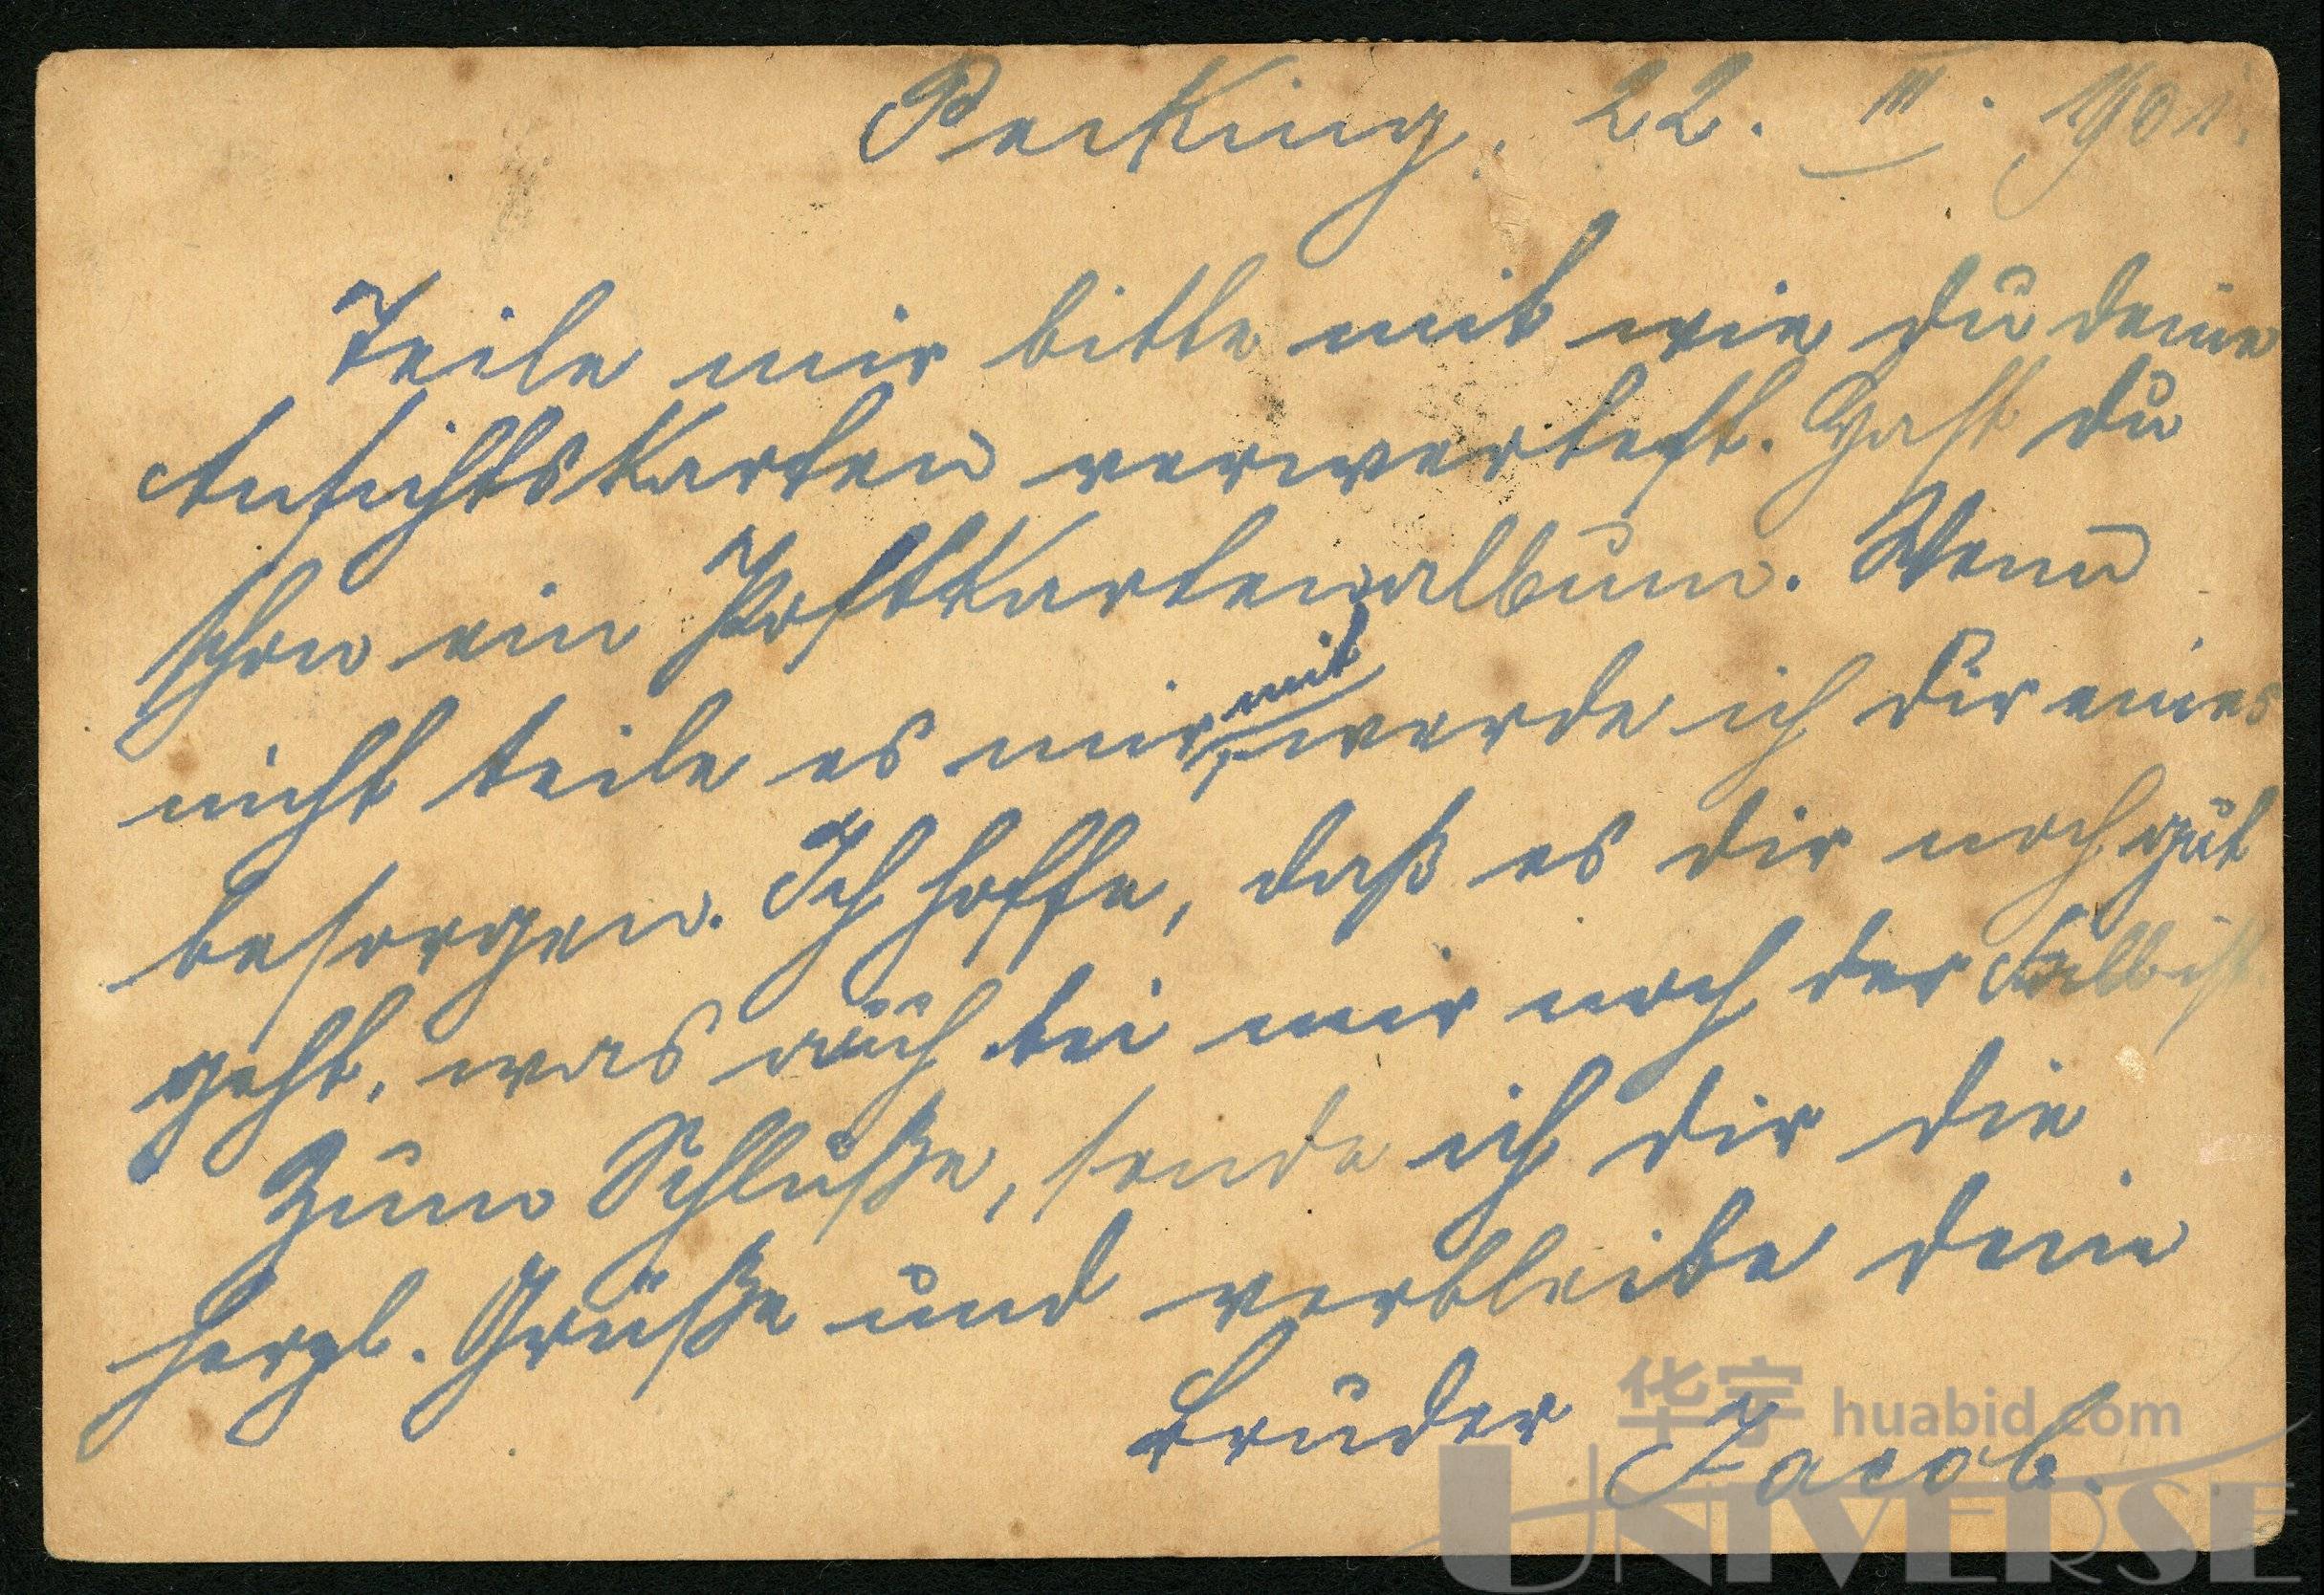 Peking. 22. III. 1901.
Teile mir bitte mit wie du deine
Ansichtskarten verwertest. Hast du
schon ein Postkartenalbum. Wenn
nicht teile es mir mit, werde ich dir eines
besorgen. Ich hoffe, daß es dir noch gut
geht, was auch bei mir noch der Fall ist.
Zum Schluße, sende ich dir die
herzl. Grüße und verbleibe dein
Bruder Jacob.
华宇 huabid.com
UNIVERSE